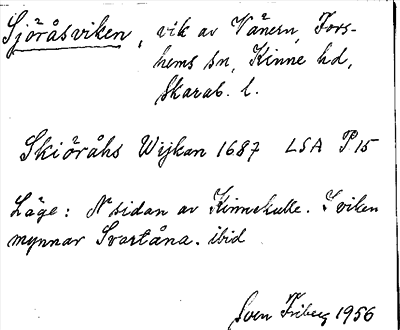 Sjöråsviken, vik av Vänern, Fors-
hems sn, Kinne hd,
Skarab. l.
Skiöråhs Wijkan 1687 LSA P15
Läge: N sidan av Kinnekulle. I viken
mynnar Svartåna. ibid
Sven Friberg 1956